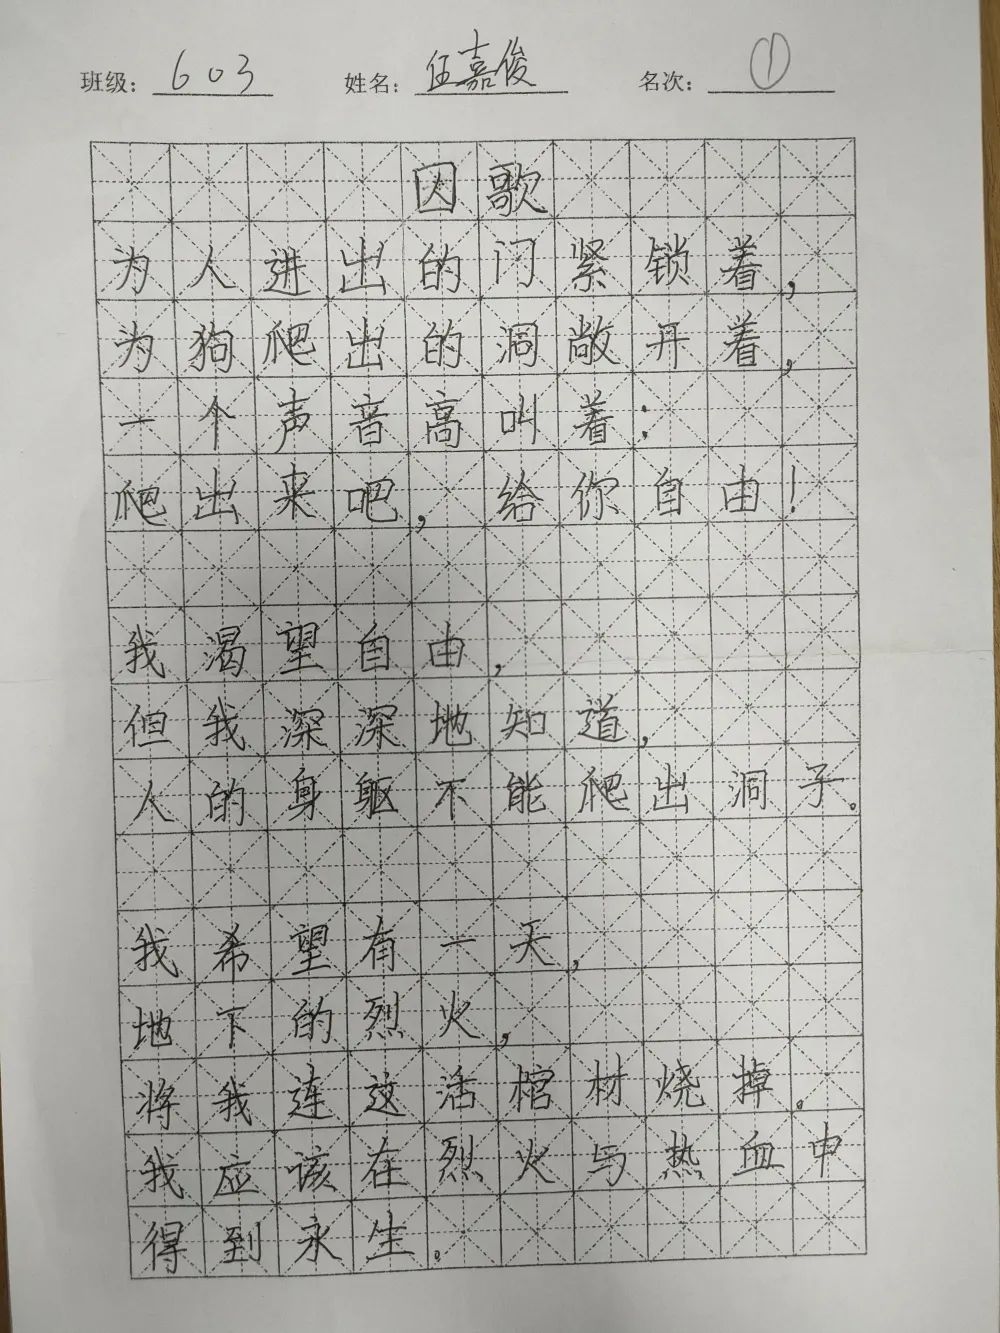 班级：603 姓名：伍嘉俊 名次：①
囚歌
为人进出的门紧锁着，
为狗爬出的洞敞开着，
一个声音高叫着：
爬出来吧，给你自由！
我渴望自由，
但我深深地知道，
人的身躯不能爬出洞子。
我希望有一天，
地下的烈火，
将我连这活棺材烧掉。
我应该在烈火与热血中
得到永生。